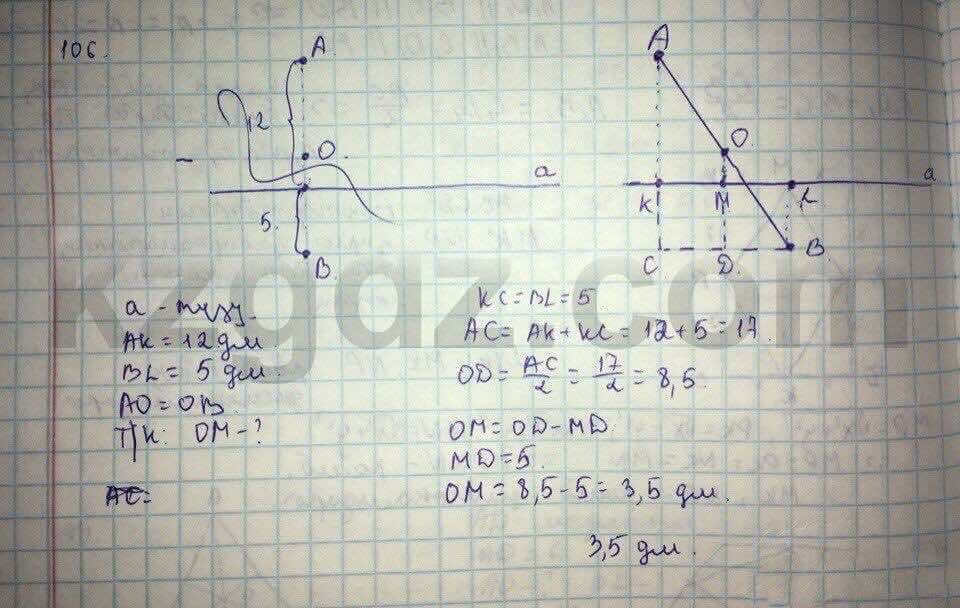 106.
A
12
O
a
5.
B
A
O
a
K
M
L
C
D
B
a - түзу.
AK = 12 дм
BL = 5 дм.
AO = OB
Т/к: OM - ?
AC =
KC = BL = 5
AC = AK + KC = 12 + 5 = 17
OD = AC/2 = 17/2 = 8,5.
OM = OD - MD.
MD = 5.
OM = 8,5 - 5 = 3,5 дм.
3,5 дм.
kzgdz.com